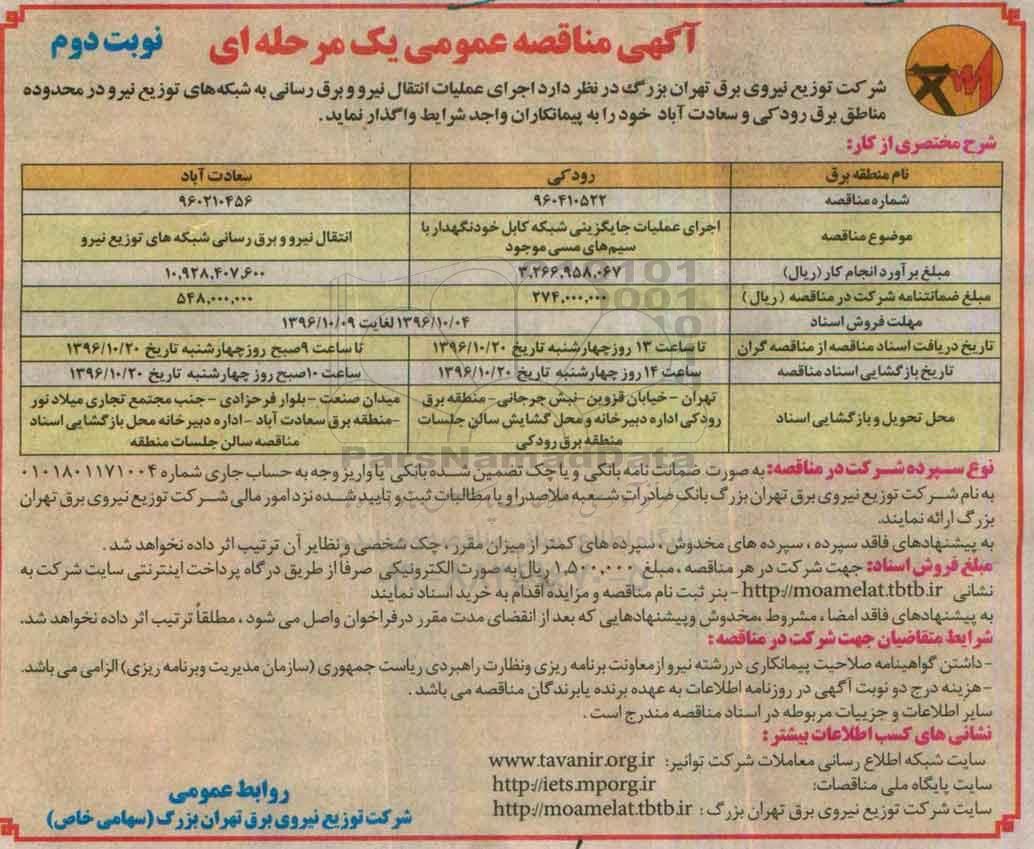 آگهی مناقصه عمومی یک مرحله ای
نوبت دوم
شرکت توزیع نیروی برق تهران بزرگ در نظر دارد اجرای عملیات انتقال نیرو و برق رسانی به شبکه‌های توزیع نیرو در محدوده
مناطق برق رودکی و سعادت آباد خود را به پیمانکاران واجد شرایط واگذار نماید.
شرح مختصری از کار:
نام منطقه برق رودکی سعادت آباد
شماره مناقصه ۹۶۰۴۱۰۵۲۲ ۹۶۰۲۱۰۴۵۶
موضوع مناقصه اجرای عملیات جایگزینی شبکه کابل خودنگهدار با سیم‌های مسی موجود انتقال نیرو و برق رسانی شبکه های توزیع نیرو
مبلغ برآورد انجام کار (ریال) ۳,۲۶۶,۹۵۸,۰۶۷ ۱۰,۹۲۸,۴۰۷,۶۰۰
مبلغ ضمانتنامه شرکت در مناقصه (ریال) ۲۷۴,۰۰۰,۰۰۰ ۵۴۸,۰۰۰,۰۰۰
مهلت فروش اسناد ۱۳۹۶/۱۰/۰۴ لغایت ۱۳۹۶/۱۰/۰۹
تاریخ دریافت اسناد مناقصه از مناقصه گران تا ساعت ۱۳ روز چهارشنبه تاریخ ۱۳۹۶/۱۰/۲۰ تا ساعت ۹ صبح روز چهارشنبه تاریخ ۱۳۹۶/۱۰/۲۰
تاریخ بازگشایی اسناد مناقصه ساعت ۱۴ روز چهارشنبه تاریخ ۱۳۹۶/۱۰/۲۰ ساعت ۱۰ صبح روز چهارشنبه تاریخ ۱۳۹۶/۱۰/۲۰
محل تحویل و بازگشایی اسناد
تهران - خیابان قزوین - نبش جرجانی - منطقه برق
رودکی اداره دبیرخانه و محل گشایش سالن جلسات
منطقه برق رودکی
میدان صنعت - بلوار فرحزادی - جنب مجتمع تجاری میلاد نور
- منطقه برق سعادت آباد - اداره دبیرخانه محل بازگشایی اسناد
مناقصه سالن جلسات منطقه
ParsNamadData
نوع سپرده شرکت در مناقصه: به صورت ضمانت نامه بانکی و یا چک تضمین شده بانکی یا واریز وجه به حساب جاری شماره ۰۱۰۱۸۰۱۱۷۱۰۰۴
به نام شرکت توزیع نیروی برق تهران بزرگ بانک صادرات شعبه ملاصدرا و یا مطالبات ثبت و تایید شده نزد امور مالی شرکت توزیع نیروی برق تهران
بزرگ ارائه نمایند.
به پیشنهادهای فاقد سپرده ، سپرده های مخدوش ، سپرده های کمتر از میزان مقرر ، چک شخصی و نظایر آن ترتیب اثر داده نخواهد شد .
مبلغ فروش اسناد: جهت شرکت در هر مناقصه ، مبلغ ۱,۵۰۰,۰۰۰ ریال به صورت الکترونیکی صرفاً از طریق درگاه پرداخت اینترنتی سایت شرکت به
نشانی http://moamelat.tbtb.ir - بنر ثبت نام مناقصه و مزایده اقدام به خرید اسناد نمایند
به پیشنهادهای فاقد امضا ، مشروط ،مخدوش وپیشنهادهایی که بعد از انقضای مدت مقرر در فراخوان واصل می شود ، مطلقاً ترتیب اثر داده نخواهد شد.
شرایط متقاضیان جهت شرکت در مناقصه :
- داشتن گواهینامه صلاحیت پیمانکاری در رشته نیرو از معاونت برنامه ریزی ونظارت راهبردی ریاست جمهوری (سازمان مدیریت وبرنامه ریزی) الزامی می باشد.
- هزینه درج دو نوبت آگهی در روزنامه اطلاعات به عهده برنده یا برندگان مناقصه می باشد .
سایر اطلاعات و جزییات مربوطه در اسناد مناقصه مندرج است .
نشانی های کسب اطلاعات بیشتر :
سایت شبکه اطلاع رسانی معاملات شرکت توانیر: www.tavanir.org.ir
سایت پایگاه ملی مناقصات: http://iets.mporg.ir
سایت شرکت توزیع نیروی برق تهران بزرگ : http://moamelat.tbtb.ir
روابط عمومی
شرکت توزیع نیروی برق تهران بزرگ (سهامی خاص)